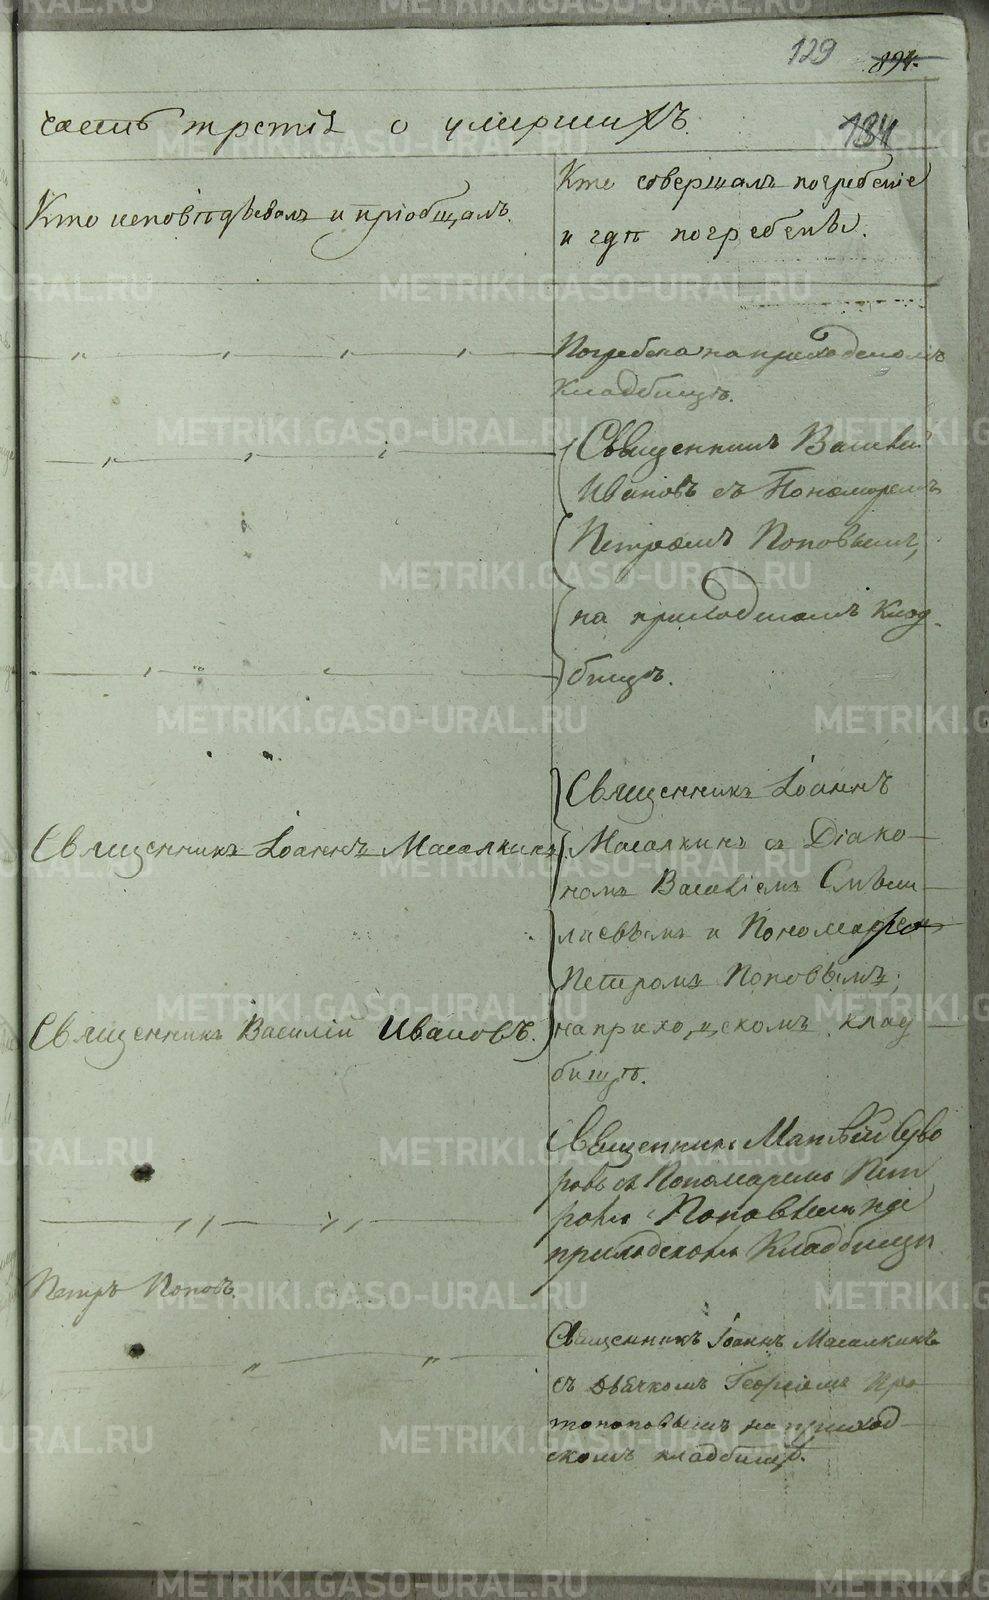 129 894.
часть третія о умершихъ. 184
Кто исповѣдывалъ и пріобщалъ.
Кто совершалъ погребеніе
и гдѣ погребены.
Погребена на приходскомъ
кладбищѣ.
Священникъ Василій
Ивановъ съ Пономаремъ
Петромъ Поповымъ,
на приходскомъ клад-
бищѣ.
Священникъ Іоаннъ
Священникъ Іоаннъ Масалкинъ
Масалкинъ съ Діако-
номъ Василіемъ
и Пономаремъ
Петромъ Поповымъ,
Священникъ Василій Ивановъ.
на приходскомъ клад-
бищѣ.
Священникъ Суво
ровъ съ Пономаремъ Пет
ромъ Поповымъ на
приходскомъ Кладбищѣ
Петръ Поповъ.
Священникъ Іоаннъ Масалкинъ
съ Дьячкомъ Георгіемъ Про
топоповымъ на приход-
скомъ кладбищѣ.
METRIKI.GASO-URAL.RU